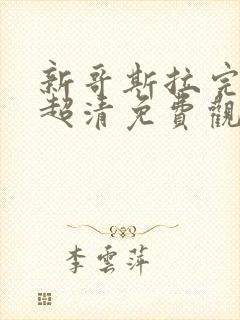 新哥斯拉完
超清免費觀
李雲萍